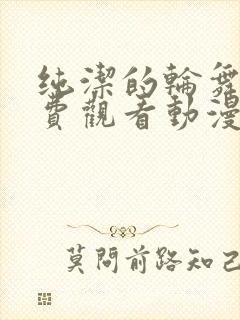 纯潔的輪舞
費觀看動漫
莫問前路知己